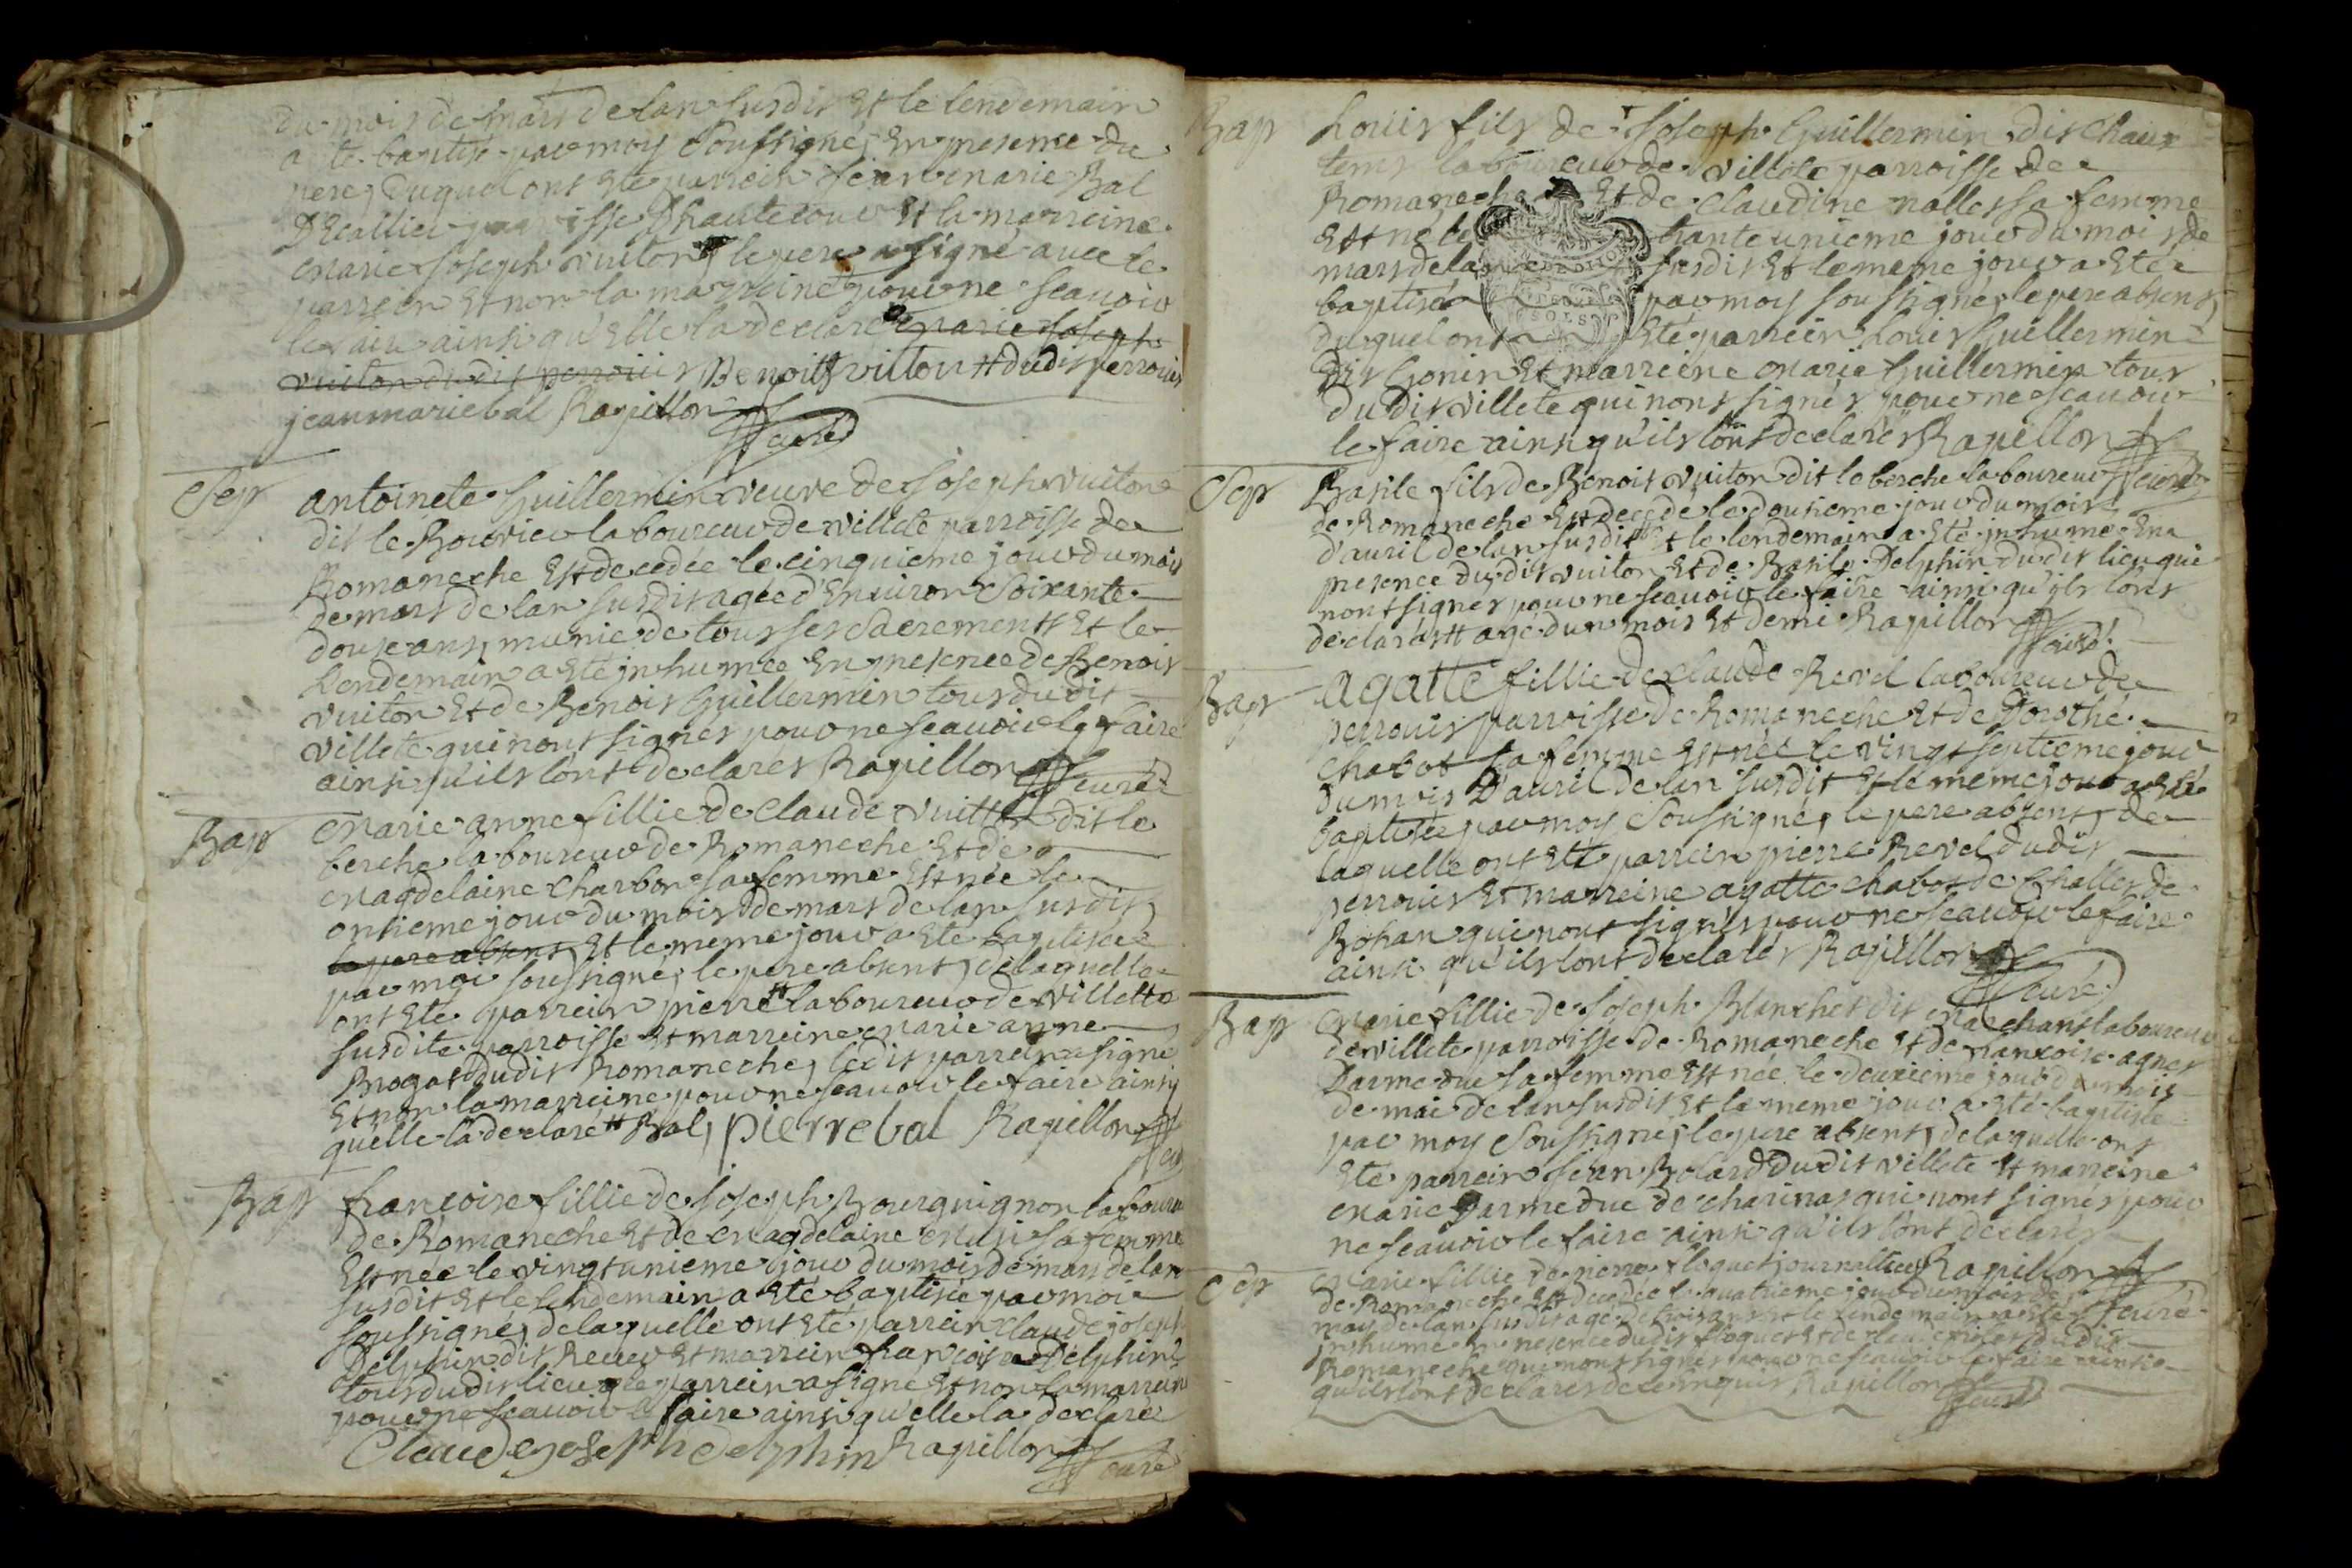 du mois de mars de lan susdit Et le lendemain
a ete baptisé par moy Soussigné, En presence du
pere, Duquel ont ete parrein jean marie Bal
Decallier parroisse Dhautecour Et la marreine
marie Joseph vuiton, le pere a signé avec le
parrein Et non la marreine pour ne scauoir
le faire ainsi qu'elle la declaré marie Joseph
vuiton dudit perrouis Benoitt vuiton tt dudit perrouis
jean marie bal Rapillon curé
Sep
antoinete Guillermin veuve de Joseph vuiton
dit le Bouvier laboureur de villete parroisse de
Romaneche Est decedée le cinquieme jour du mois
de mars de lan susdit agée d'Environ Soixante
douse ans, munie de tous ses sacrements Et le
Lendemain a ete jnhumée En presence de Benoit
vuiton Et de Benoit Guillermin tous dudit
villete qui nont signés pour ne scauoir le faire
ainsi qu'ils lont declarés Rapillon curé
Bap
marie anne fillie de Claude vuitton dit le
berche laboureur de Romaneche Et de
magdelaine Charbon sa femme Est née le
onsieme jour du mois de mars de lan susdit
le pere absent Et le meme jour a ete baptisée
par moi soussigné, le pere absent, de laquelle
ont ete parrein pierre tt laboureur de villette
susdite parroisse Et marreine marie anne
Brogat dudit Romaneche, ledit parrein a signé
Et non la marreine pour ne scauoir le faire ainsy
quelle la declaré tt Bal, pierre bal Rapillon
Bap
francoise fillie de Joseph Bourguignon laboureur
de Romaneche Et de magdelaine sa femme
Est née le vingt unieme jour du mois de mars de lan
susdit Et le lendemain a ete baptisée par moi
soussigné, de laquelle ont ete parrein claude joseph
Delphin dit Revey Et marrein francoise Delphin
tous dudit lieu le parrein a signé Et non la marrein
pour ne scauoir le faire ainsi qu'elle la declaré
Claude joseph delphin Rapillon curé
Bap
Louis fils de Joseph Guillermin dit Chaux
tems laboureur de villete parroisse de
Romaneche Et de Claudine nallet sa femme
Est né le trante unieme jour du mois de
mars de lan susdit Et le meme jour a Ete
baptisé par moy soussigné, le pere absent,
duquel ont Ete parrein Louis Guillermin
dit Gonin Et marreine marie Guillermin tous
dudit villete qui nont signés pour ne scauoir
le faire ainsi qu'ils lont declarés Rapillon curé
Sep
Basile fils de Benoit vuiton dit le berche laboureur
de Romaneche Est decedé le dousieme jour du mois
d'auril de lan susdit Et le lendemain a Eté jnhumé En
presence dudit vuiton Et de Basile Delphin dudit lieu qui
nont signés pour ne scauoir le faire ainsi qu'ils lont
declarés tt agé dun mois Et demi Rapillon curé
Bap
agatte fillie de claude Revel laboureur de
perrouis parroisse de Romaneche Et de Dorothé
Chabot sa femme Est née le vingt septieme jour
du mois D'auril de lan susdit Et le meme jour a Eté
baptisée par moy Soussigné, le pere absent, de
laquelle ont ete parrein pierre Revel dudit
perrouis Et marreine agatte chabot de Challes de
Bohan qui nont signés pour ne scauoir le faire
ainsi qu'ils lont declarés Rapillon curé
Bap
Marie fillie de Joseph Blanchet dit marchant laboureur
de villete parroisse de Romaneche Et de francoise agnes
Darmedue sa femme Est née le deuxieme jour du mois
de mai de lan susdit Et le meme jour a eté baptisée
par moy Soussigné, le pere absent, de laquelle ont
Ete parrein jean Bolard dudit villete Et marreine
marie Darmedue de charinas qui nont signés pour
ne scauoir le faire ainsi qu'ils lont declarés
Rapillon curé
Sep
Marie fillie de pierre floquet journallier
de Romaneche Est decedée le quatrieme jour du mois de
may de lan susdit agé de trois ans Et le lendemain a été
jnhumé En presence dudit floquet Et de dudit
Romaneche qui nont signés pour ne scauoir le faire ainsi
qu'ils lont declarés de ce enquis Rapillon curé